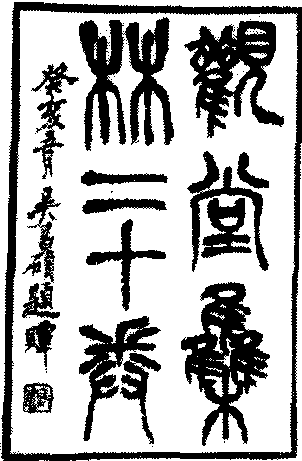 觀堂雧
林二十卷
癸亥 吳昌碩題